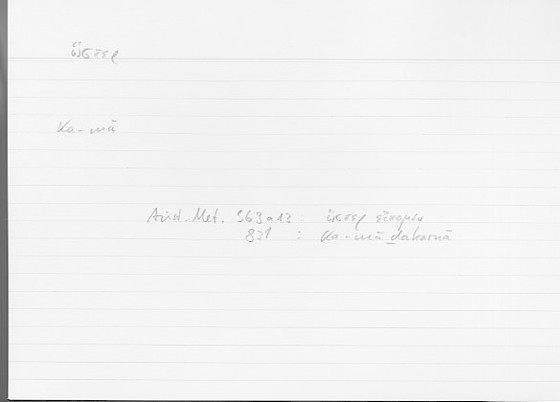 ὥσπερ
ka-mā
Arist. Met. 369a13 : ὥσπερ εἴπομεν
821 : ka-mā ḏakarnā